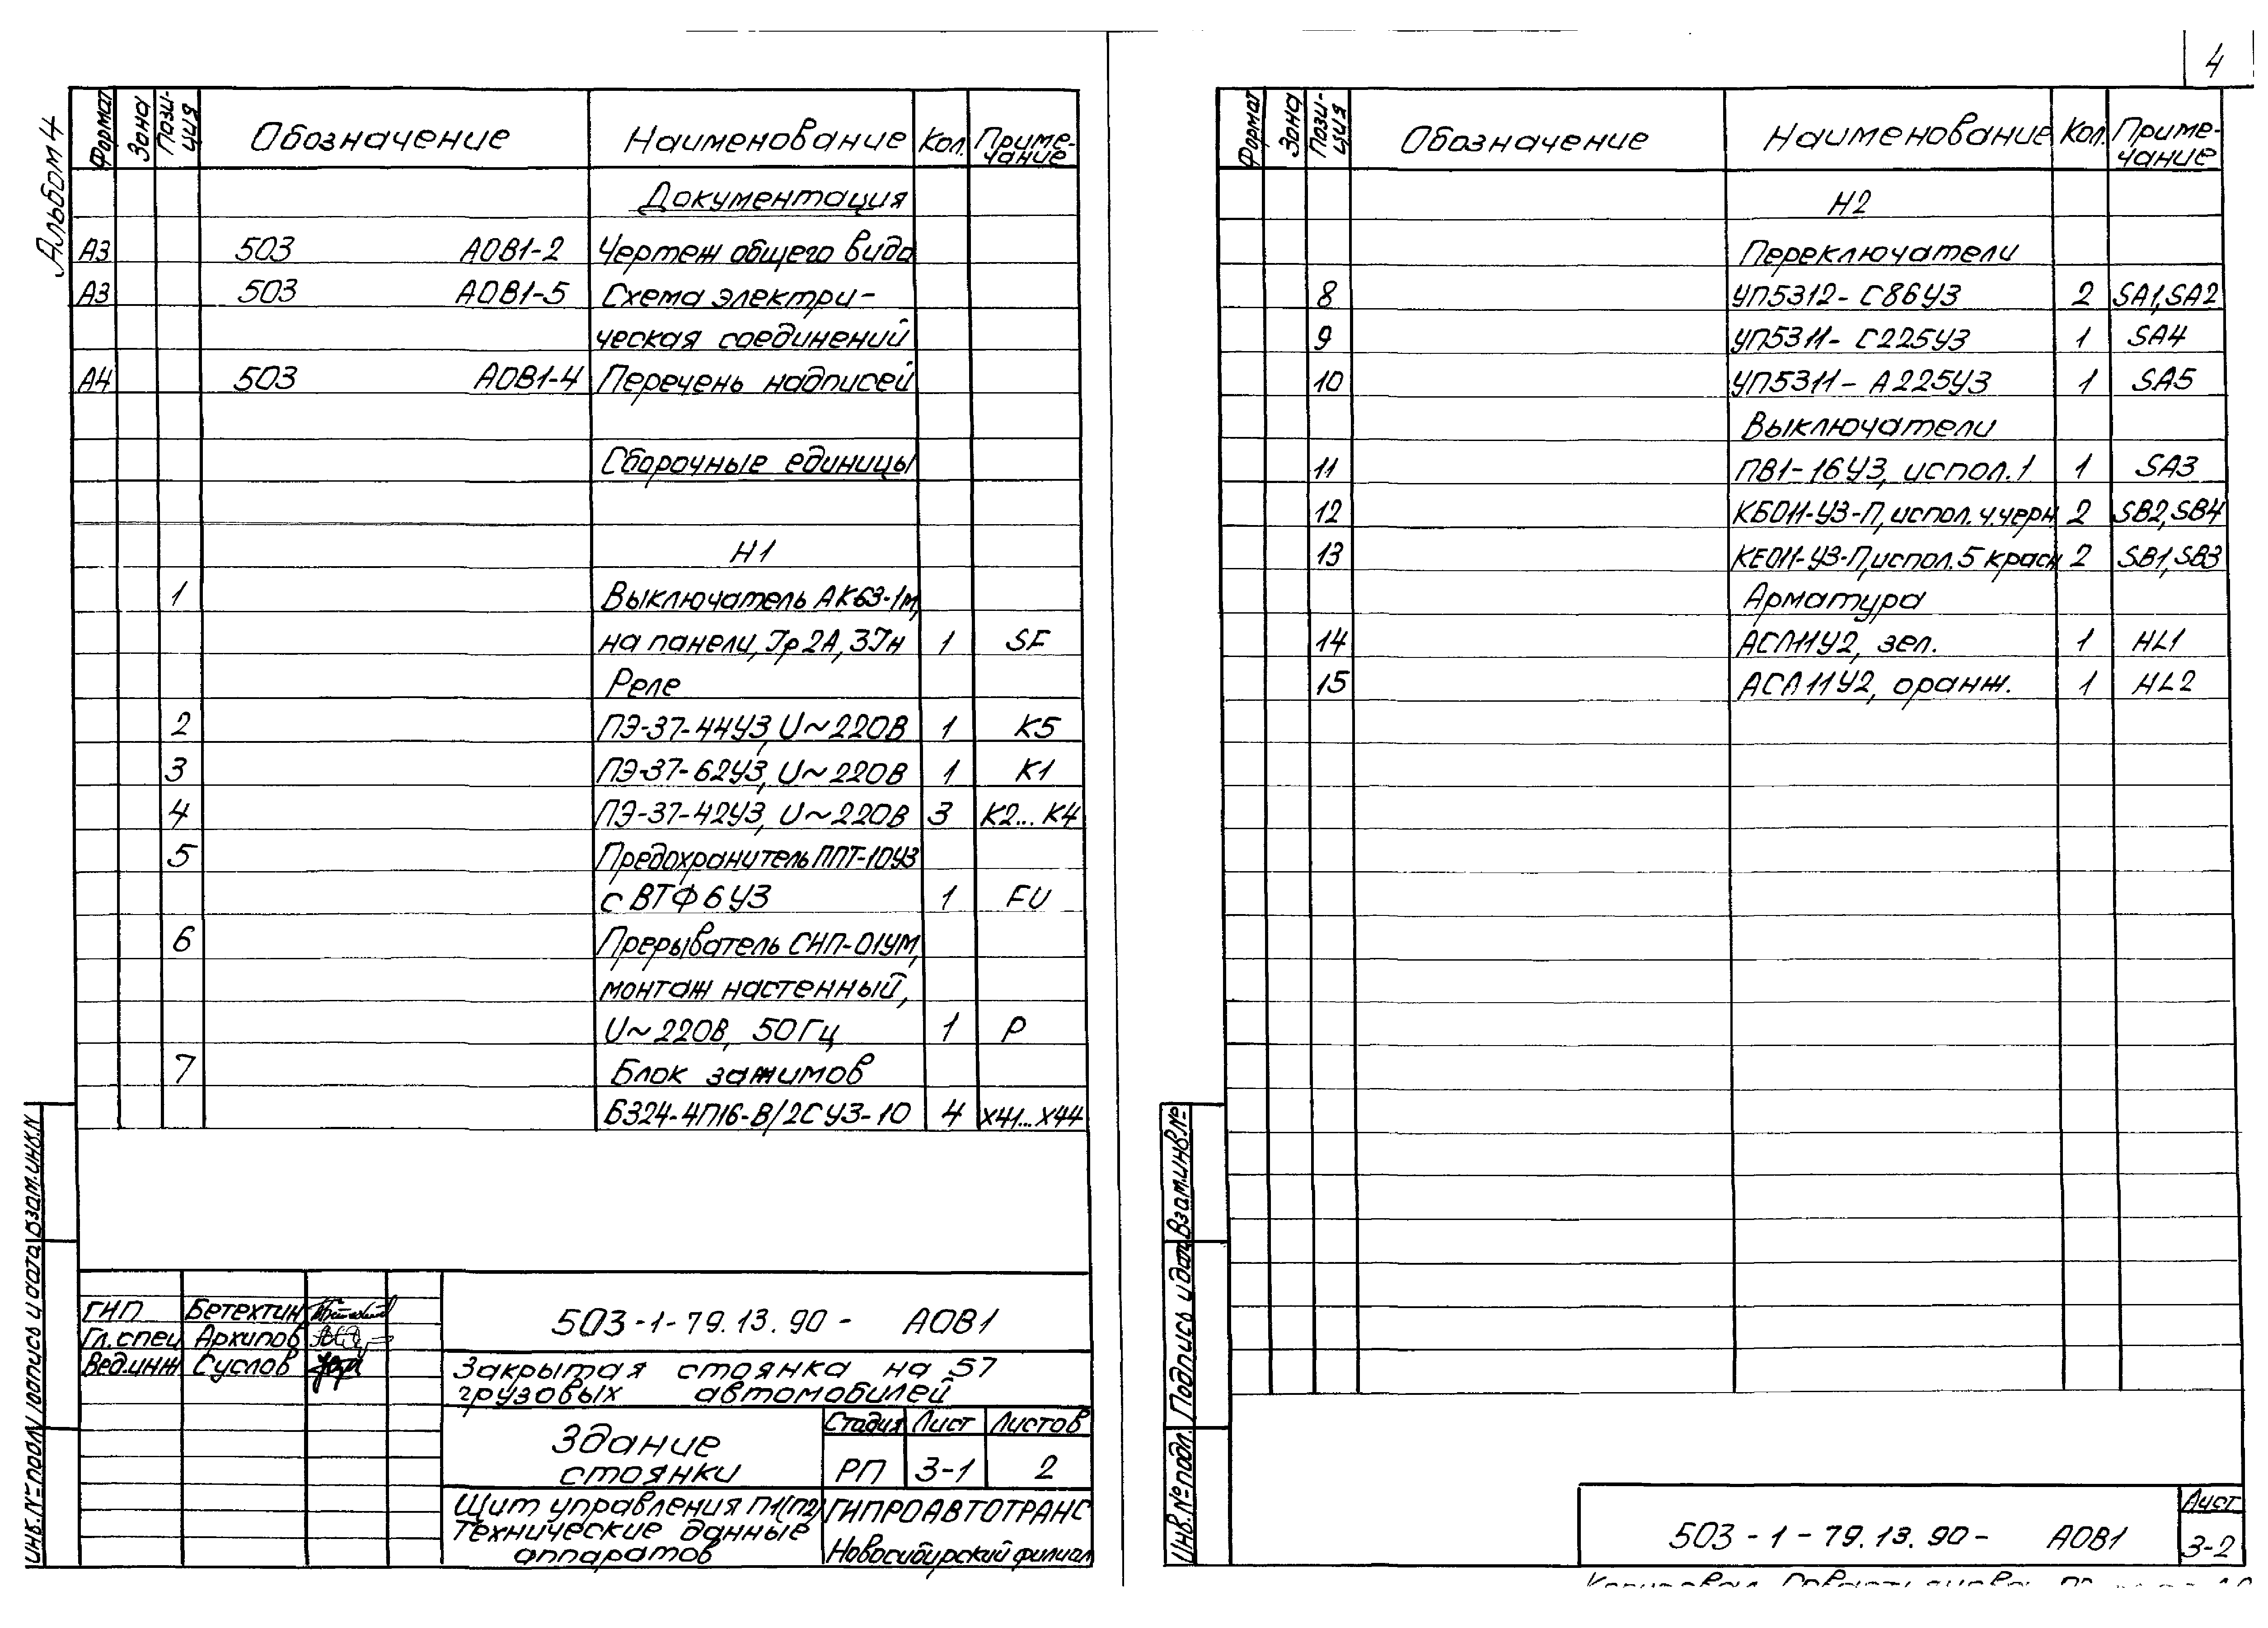 Альбом 4
Формат Зона Пози-ция Обозначение Наименование Кол. Приме-чание
Документация
А3 503 АОВ1-2 Чертеж общего вида
А3 503 АОВ1-5 Схема электри-
ческая соединений
А4 503 АОВ1-4 Перечень надписей
Сборочные единицы
Н1
1 Выключатель АК63-1М,
на панели, Iр 2А, 3Iн 1 SF
Реле
2 ПЭ-37-44У3, U~220В 1 К5
3 ПЭ-37-62У3, U~220В 1 К1
4 ПЭ-37-42У3, U~220В 3 К2...К4
5 Предохранитель ППТ-10У3
с ВТФ6У3 1 FU
6 Прерыватель СНП-01УМ,
монтаж настенный,
U~220В, 50Гц 1 Р
7 Блок зажимов
БЗ24-4П16-В/2СУ3-10 4 Х41...Х44
Инв.№ подл. Подпись и дата Взам.инв.N
ГИП Бетехтин
Гл.спец Архипов
Вед.инж Суслов
503-1-79.13.90- АОВ1
Закрытая стоянка на 57
грузовых автомобилей
Здание
стоянки
Стадия Лист Листов
РП 3-1 2
Щит управления П1(П2)
Технические данные
аппаратов
ГИПРОАВТОТРАНС
Новосибирский филиал
4
Формат Зона Пози-ция Обозначение Наименование Кол. Приме-чание
Н2
Переключатели
8 УП5312-С86У3 2 SA1,SA2
9 УП5311-С225У3 1 SA4
10 УП5311-А225У3 1 SA5
Выключатели
11 ПВ1-16У3, испол.1 1 SA3
12 КБ011-У3-П, испол.ч.черн 2 SB2,SB4
13 КЕ011-У3-П,испол.5 красн 2 SB1,SB3
Арматура
14 АСЛ11У2, зел. 1 HL1
15 АСЛ11У2, оранж. 1 HL2
Инв.№ подл. Подпись и дата Взам.инв.№
503-1-79.13.90- АОВ1
Лист
3-2